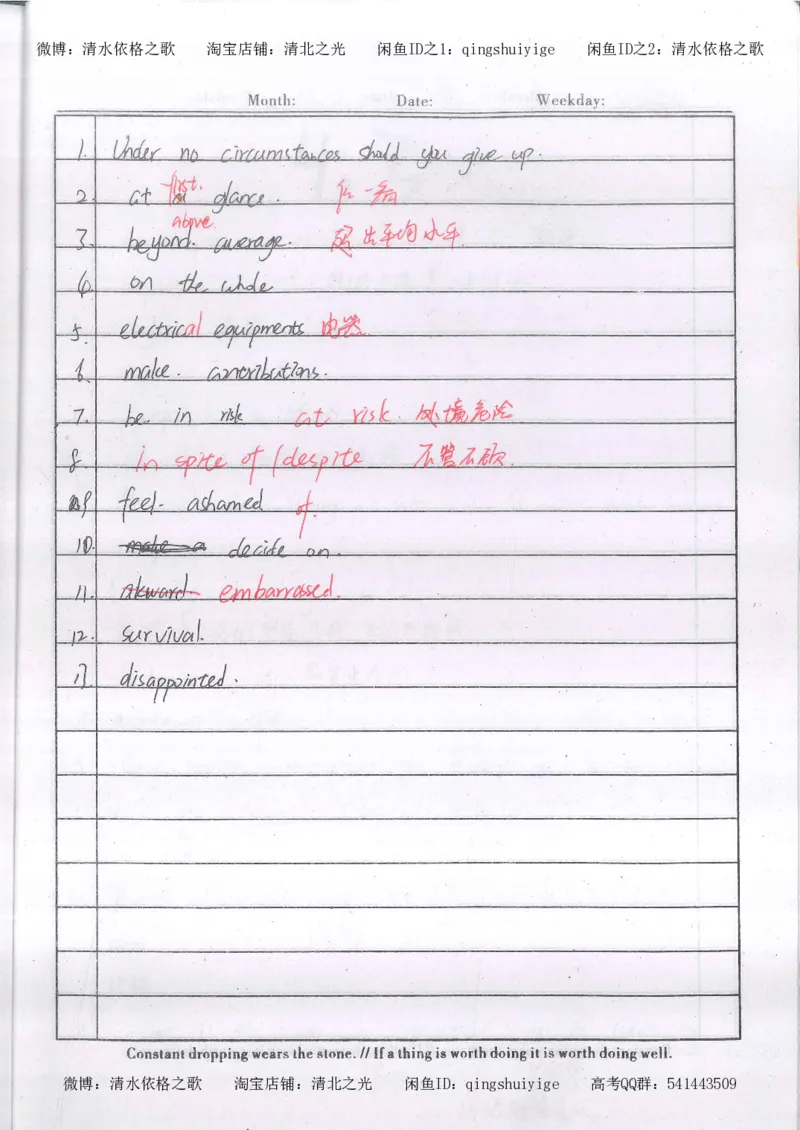 微博：清水依格之歌 淘宝店铺：清北之光 闲鱼ID之1：qingshuiyige 闲鱼ID之2：清水依格之歌
Month: Date: Weekday:
1. Under no circumstances should you give up.
first.
2. at glance.
above
3. beyond. average. 超出平均水平.
4. on the whole
5. electrical equipments 电器
6. make. contributions.
7. be in risk at risk. 处境危险
8. in spite of / despite 不管不顾.
9 feel ashamed of.
10. make a decide on.
11. akward embarrassed.
12. survival.
13. disappointed.
Constant dropping wears the stone. // If a thing is worth doing it is worth doing well.
微博：清水依格之歌 淘宝店铺：清北之光 闲鱼ID：qingshuiyige 高考QQ群：541443509